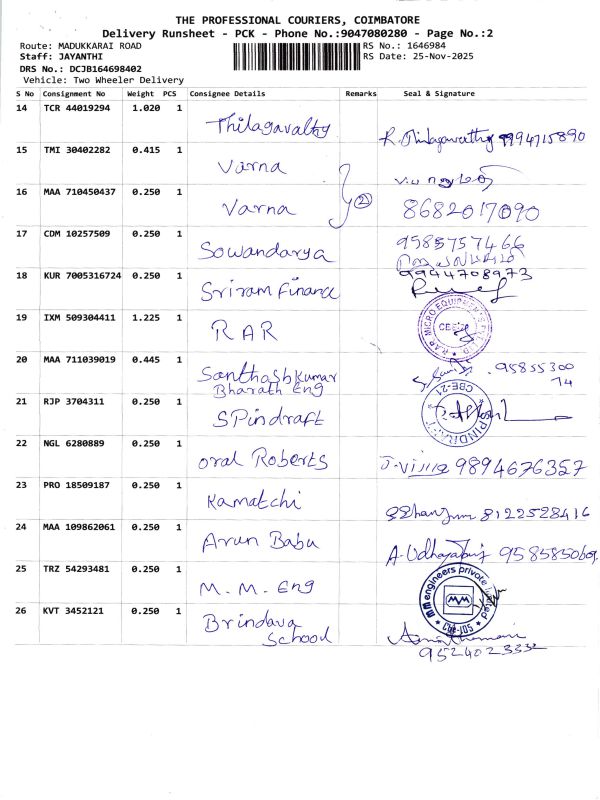 THE PROFESSIONAL COURIERS, COIMBATORE
Delivery Runsheet - PCK - Phone No.:9047080280 - Page No.:2
Route: MADUKKARAI ROAD RS No.: 1646984
Staff: JAYANTHI RS Date: 25-Nov-2025
DRS No.: DCJB164698402
Vehicle: Two Wheeler Delivery
S No Consignment No Weight PCS Consignee Details Remarks Seal & Signature
14 TCR 44019294 1.020 1 Thilagavathy 9994715890
15 TMI 30402282 0.415 1 Varna
16 MAA 710450437 0.250 1 Varna 2 8682017090
17 CDM 10257509 0.250 1 Sowandarya 9585757466
18 KUR 7005316724 0.250 1 Sriram Finance 9944708973
19 IXM 509304411 1.225 1 RAR RAR MICRO EQUIPMENTS
20 MAA 711039019 0.445 1 Santhoshkumar 95855300
Bharath Eng 74
21 RJP 3704311 0.250 1 SPindraft CBE-21 SPINDRAFT
22 NGL 6280889 0.250 1 Oral Roberts 9894676357
23 PRO 18509187 0.250 1 Kamatchi 8122528416
24 MAA 109862061 0.250 1 Arun Babu
25 TRZ 54293481 0.250 1 M.M. Eng MM engineers private limited
26 KVT 3452121 0.250 1 Brindava Cbe-105
School
9524023332